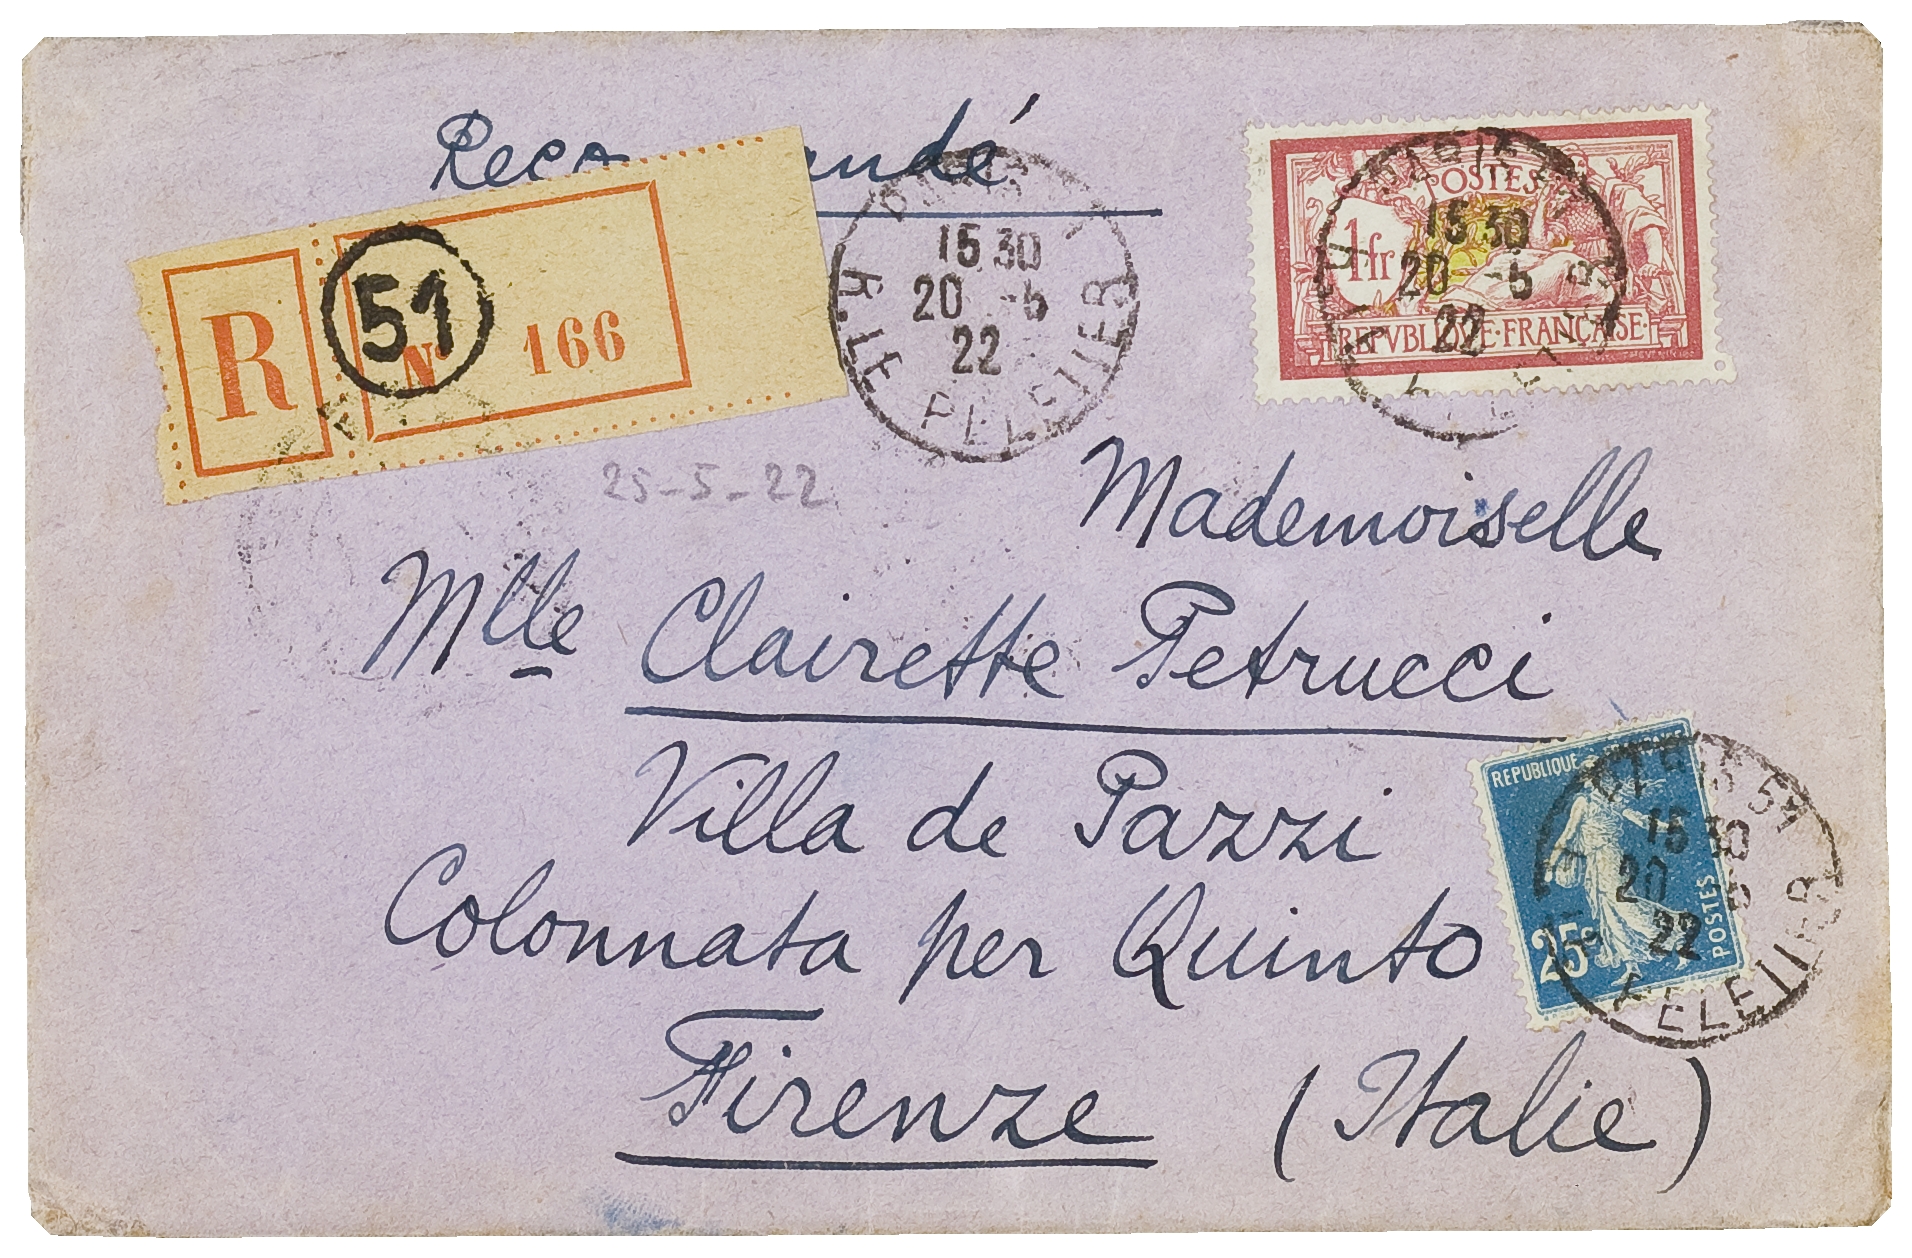 Reca andé
R
51
Nº 166
PARIS
15 30
20 -5
22
R. LE PELETIER
1fr
POSTES
REPVBLIQVE·FRANÇAISE·
PARIS
15 30
20 -5
22
25-5-22
Mademoiselle
Mlle Clairette Petrucci
Villa de Pazzi
Colonnata per Quinto
Firenze (Italie)
REPUBLIQUE FRANÇAISE
25c
POSTES
PARIS 51
15 30
20 5
22
R. LE PELETIER